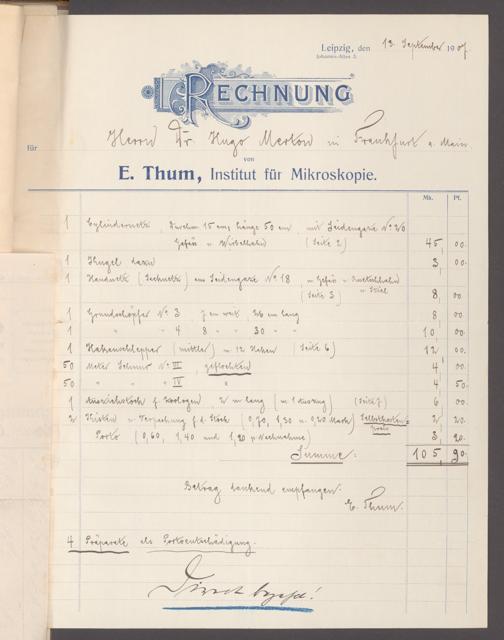 Leipzig, den 13. September 1907.
Johannes-Allee 3.
RECHNUNG
für Herrn Dr. Hugo Merton in Frankfurt a. Main.
von
E. Thum, Institut für Mikroskopie.
Mk. Pf.
1 Cylindernetz, Durchm. 15 cm, Länge 50 cm, mit Seidengaze No 20
Gefäss u. (Seite 2) 45, 00.
1 Kugel dazu 3, 00.
1 Handnetz ( ) aus Seidengaze No 18, m. Gefäss u.
(Seite 3) u. Stiel 8, 00
1 Grundschöpfer No 3, 7 cm weit, 26 cm lang 8, 00
1 " " 4 8 " 30 " " 10, 00
1 Hakenschlepper (mittler) m. 12 Haken (Seite 6) 12, 00
50 Meter Schnur No III, geflochten 4, 00
50 " " " IV " 4, 50
1 f. 2 m lang (m. 1 Auszug) (Seite 7) 6, 00
2 Kisten u. Verpackung f. d. Stock (0,70, 1,30 u. 0,20 Mark) Selbstkosten-
preis 2, 20
Porto (0,60, 1,40 und 1,20 p. Nachnahme) 3, 20.
Summe. 105, 90.
Betrag dankend empfangen.
E. Thum.
4 Präparate als Portoentschädigung.
Direct bezahlt!